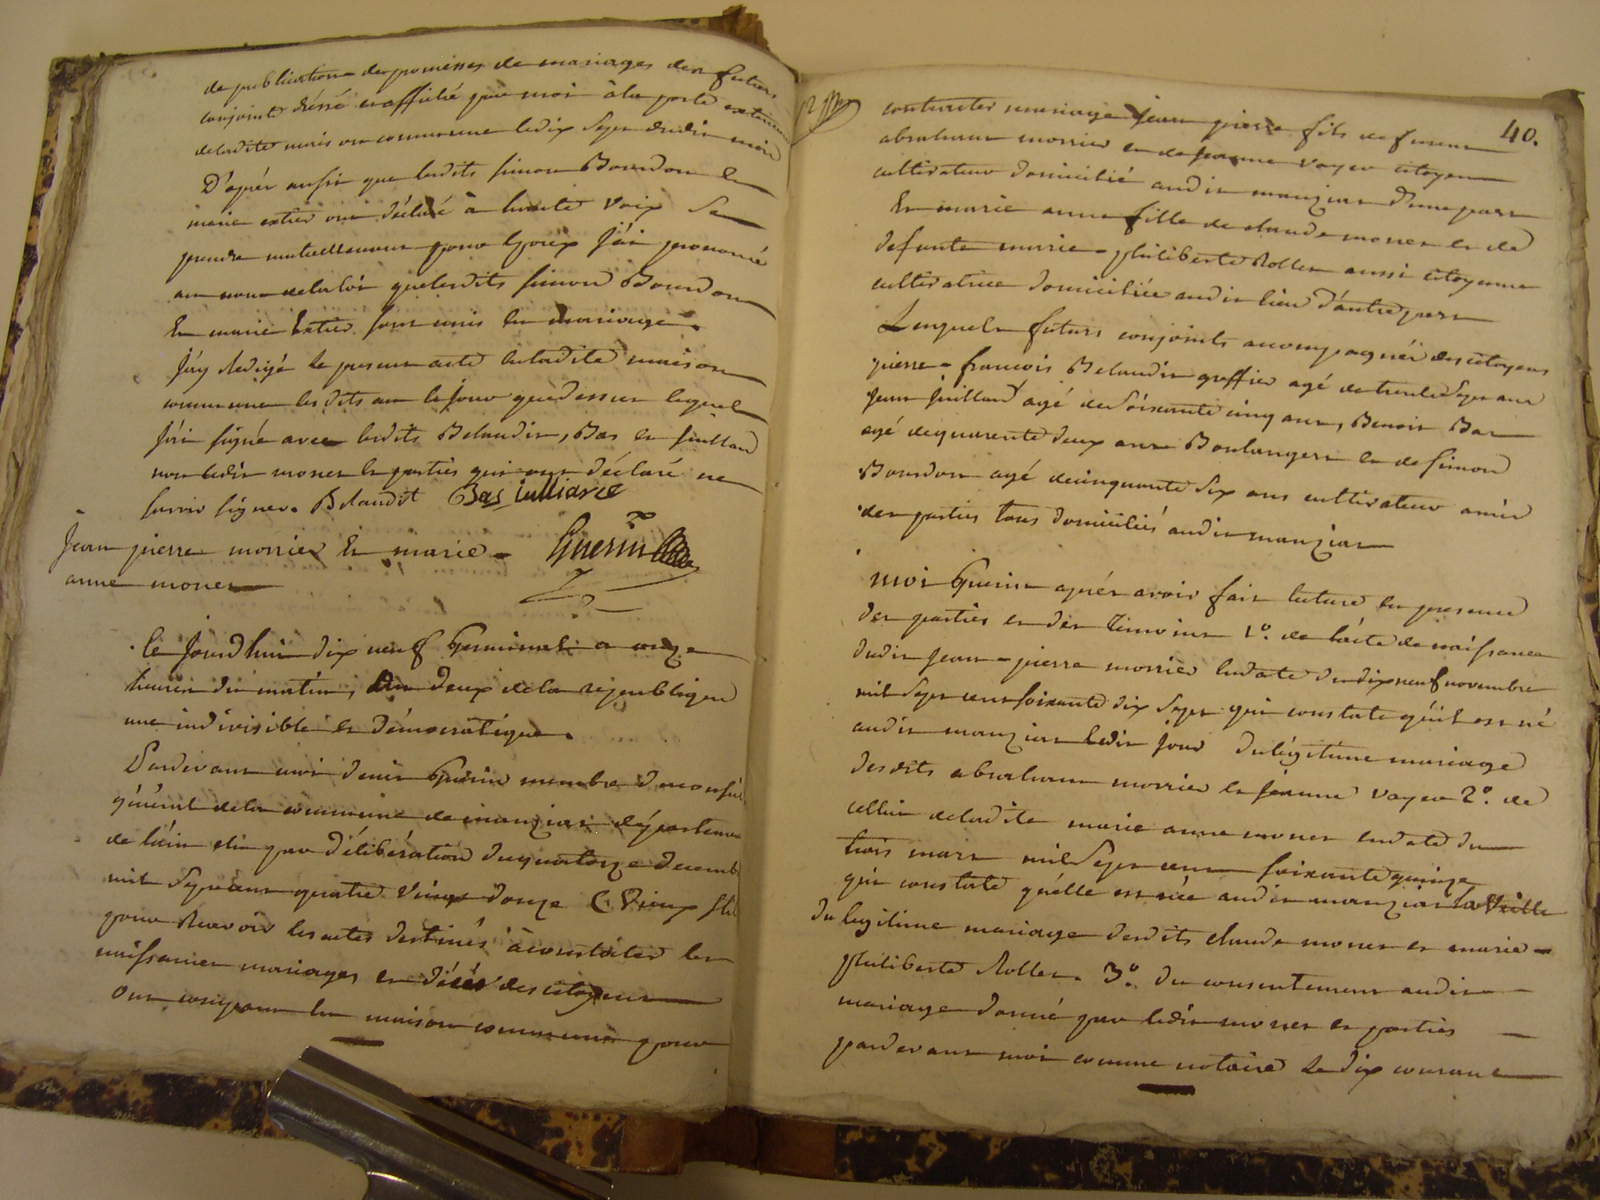 de publication des promesses de mariages des futurs
conjoints dressé et affiché par moi à la porte exterieure
de ladite maison commune le dix sept dudit mois
D'après aussi que lesdits simon Bourdon et
marie extier ont déclaré à haute voix se
prendre mutuellement pour Epoux J'ai prononcé
au nom de la loi que lesdits simon Bourdon
Et marie Extier sont unis en mariage.
J'ay Redigé le present acte en ladite maison
commune lesdits an et jour que dessus lequel
J'ai signé avec lesdits Belaudit, Bas et juillard
non ledit moner et parties qui ont déclaré ne
savoir signer. Belaudit Bas juillard
Jean pierre morrier Et marie - Guerin
anne moner
Ce Jourd'hui dix neuf Germinal a onze
heures du matin, An deux de la republique
une indivisible et démocratique.
Pardevant moi denis Guerin membre du conseil
général de la commune de manziat département
de l'ain elu par délibération du quatorze decemb
mil sept cent quatre vingt douze (Vieux stil
pour Recevoir les actes destinés à constater les
naissances mariages et décès des citoyens
Ont comparu en maison commune pour
40.
contracter mariage jean pierre fils de
abraham morrier et de jeanne vayer citoyen
cultivateur domicilié audit manziat d'une part
Et marie anne fille de claude moner et de
defunte marie - philiberte Roller aussi citoyenne
cultivatrice domiciliée audit lieu d'autre part
Lesquels futurs conjoints accompagnés des citoyens
pierre - francois Belaudit greffier agé de trente sept ans
Jean juillard agé de soixante cinq ans, Benoit Bas
agé de quarente deux ans Boulangers et de simon
Bourdon agé de cinquante six ans cultivateur amis
des parties tous domiciliés audit manziat
moi Guerin après avoir fait lecture en presence
des parties et des témoins 1o. de l'acte de naissance
dudit jean - pierre morrier en date du dix neuf novembre
mil sept cent soixante dix sept qui constate qu'il est né
audit manziat ledit jour du légitime mariage
desdits abraham morrier et jeanne vayer 2o. de
cellui de ladite marie anne moner en date du
trois mars mil sept cent soixante quinze
qui constate qu'elle est née audit manziat la veille
du legitime mariage desdits claude moner et marie -
philiberte Roller. 3o. du consentement audit
mariage donné par ledit moner et parties
pardevant moi comme notaire le dix courant